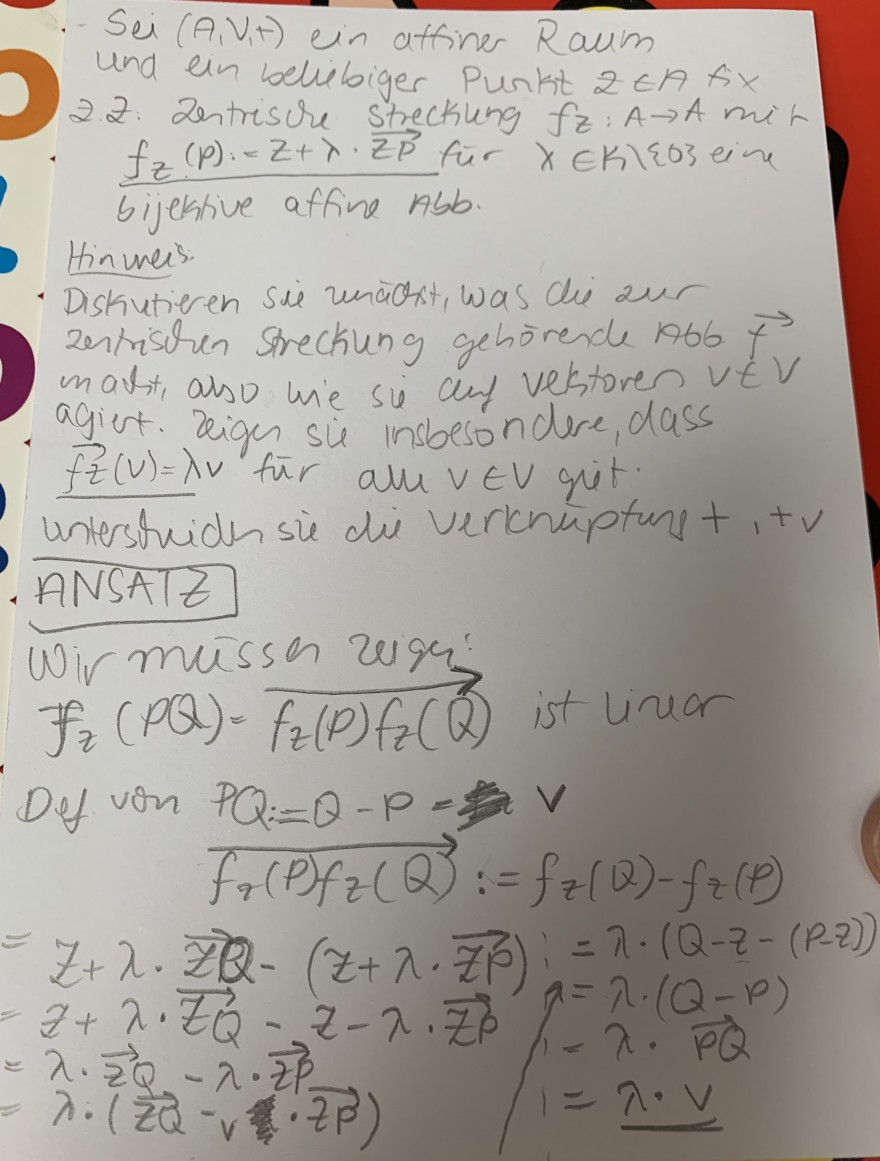 - Sei (A,V,+) ein affiner Raum
und ein beliebiger Punkt Z ∈ A fix
z.z. Zentrische Streckung f_Z : A→A mit
f_Z(P) := Z + λ · \overrightarrow{ZP} für λ ∈ K\{0} eine
bijektive affine Abb.
Hinweis:
Diskutieren sie zunächst, was die zur
zentrischen Streckung gehörende Abb. \overrightarrow{f}
macht, also wie sie auf vektoren v ∈ V
agiert. Zeigen sie insbesondere, dass
\overrightarrow{f_Z}(v) = λv für alle v ∈ V gilt.
unterscheiden sie die Verknüpfung + , +v
ANSATZ
Wir müssen zeigen:
f_Z(PQ) = \overrightarrow{f_Z(P)f_Z(Q)} ist linear
Def von PQ := Q - P = v
\overrightarrow{f_Z(P)f_Z(Q)} := f_Z(Q) - f_Z(P)
= Z + λ · \overrightarrow{ZQ} - (Z + λ · \overrightarrow{ZP})
= Z + λ · \overrightarrow{ZQ} - Z - λ · \overrightarrow{ZP}
= λ · \overrightarrow{ZQ} - λ · \overrightarrow{ZP}
= λ · (\overrightarrow{ZQ} -v · \overrightarrow{ZP})
= λ · (Q - Z - (P - Z))
= λ · (Q - P)
= λ · \overrightarrow{PQ}
= λ · v